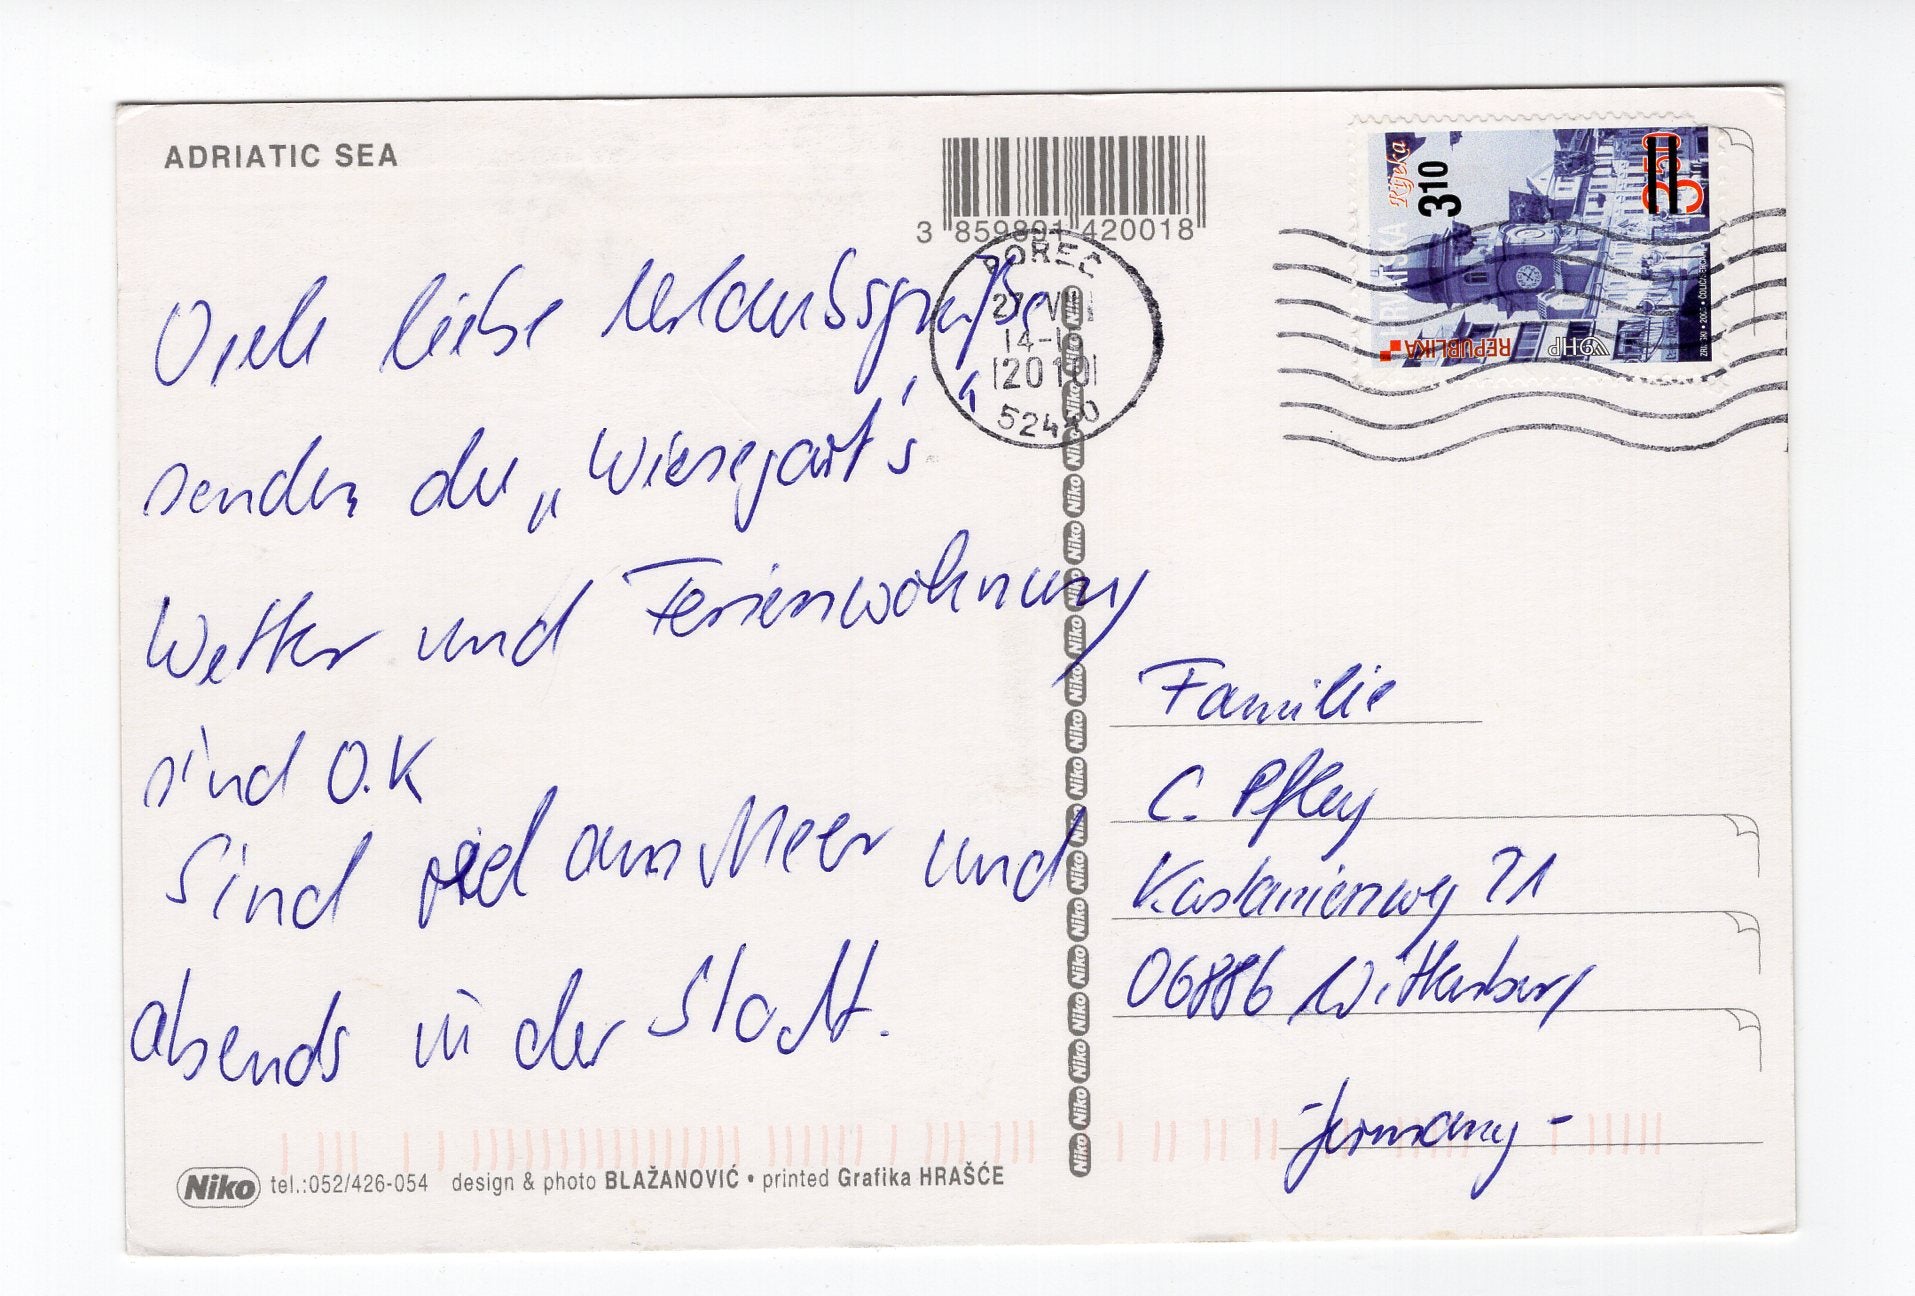 ADRIATIC SEA
3 859891 420018
Viele liebe Urlaubsgrüße
senden die „Wiesegart's“
Wetter und Ferienwohnung
sind O.K
Sind viel am Meer und
abends in der Stadt.
Niko tel.:052/426-054 design & photo BLAŽANOVIĆ • printed Grafika HRAŠĆE
Niko Niko Niko Niko Niko Niko Niko Niko Niko Niko Niko Niko Niko Niko Niko Niko Niko Niko Niko
POREČ
27. VII
14-
2010
52440
Rijeka
310
350
REPUBLIKA HRVATSKA
HP
Familie
C. Pfley
Kastanienweg 21
06886 Wittenberg
-Germany-